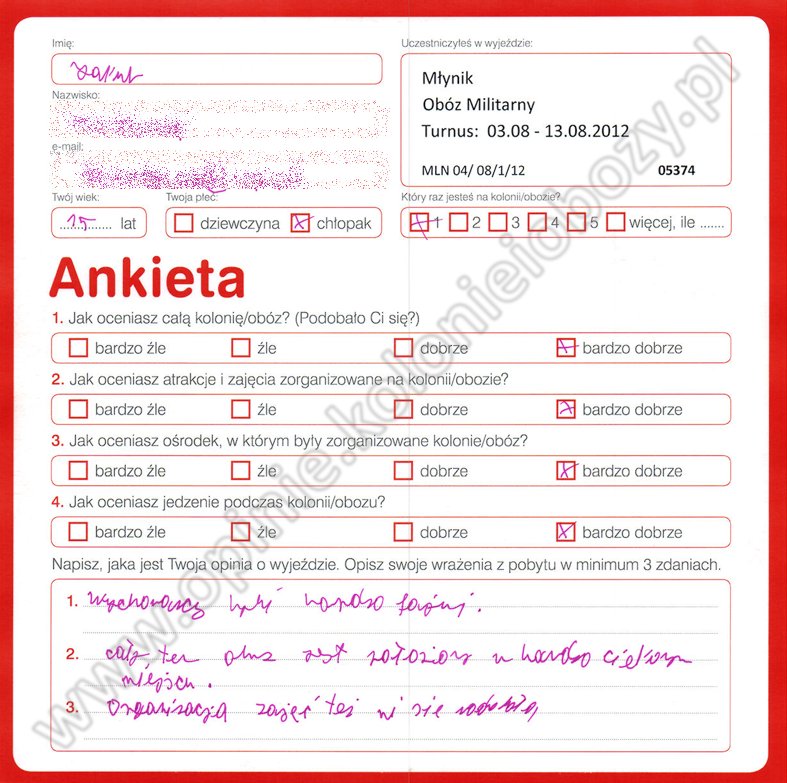 Imię:
Uczestniczyłeś w wyjeździe:
Młynik
Obóz Militarny
Turnus: 03.08 - 13.08.2012
MLN 04/ 08/1/12 05374
Nazwisko:
e-mail:
Twój wiek: Twoja płeć: Który raz jesteś na kolonii/obozie?
15 lat dziewczyna chłopak 1 2 3 4 5 więcej, ile .......
Ankieta
1. Jak oceniasz całą kolonię/obóz? (Podobało Ci się?)
bardzo źle źle dobrze bardzo dobrze
2. Jak oceniasz atrakcje i zajęcia zorganizowane na kolonii/obozie?
bardzo źle źle dobrze bardzo dobrze
3. Jak oceniasz ośrodek, w którym były zorganizowane kolonie/obóz?
bardzo źle źle dobrze bardzo dobrze
4. Jak oceniasz jedzenie podczas kolonii/obozu?
bardzo źle źle dobrze bardzo dobrze
Napisz, jaka jest Twoja opinia o wyjeździe. Opisz swoje wrażenia z pobytu w minimum 3 zdaniach.
1. Wychowawcy byli bardzo fajni.
2. cały ten obuz jest położony w bardzo
miejscu.
3. organizacja zajęć też mi się
www.opinie.kolonieiobozy.pl